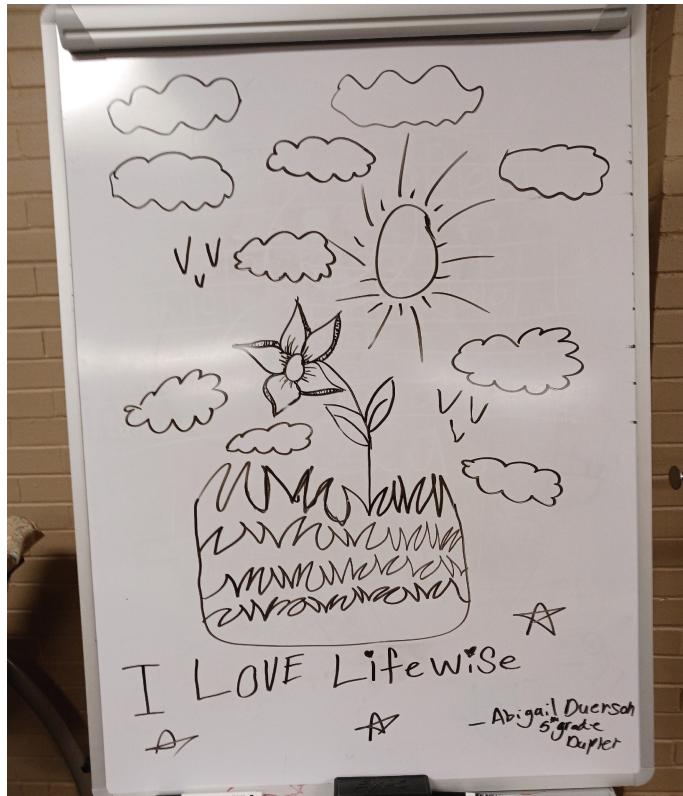 I LOVE LifewiSe
- Abigail Duerson
5th grade
Dupler